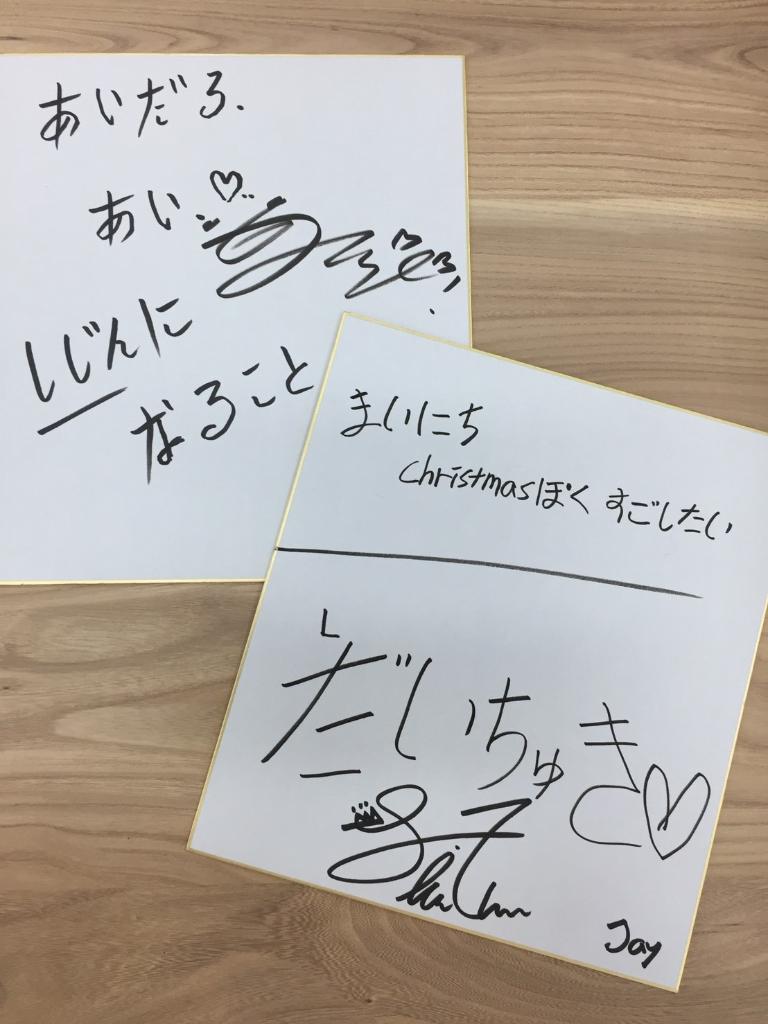 あいだろ、
あい
しじんに
なること
まいにち
Christmasぽく すごしたい
だいちゅき
Jay